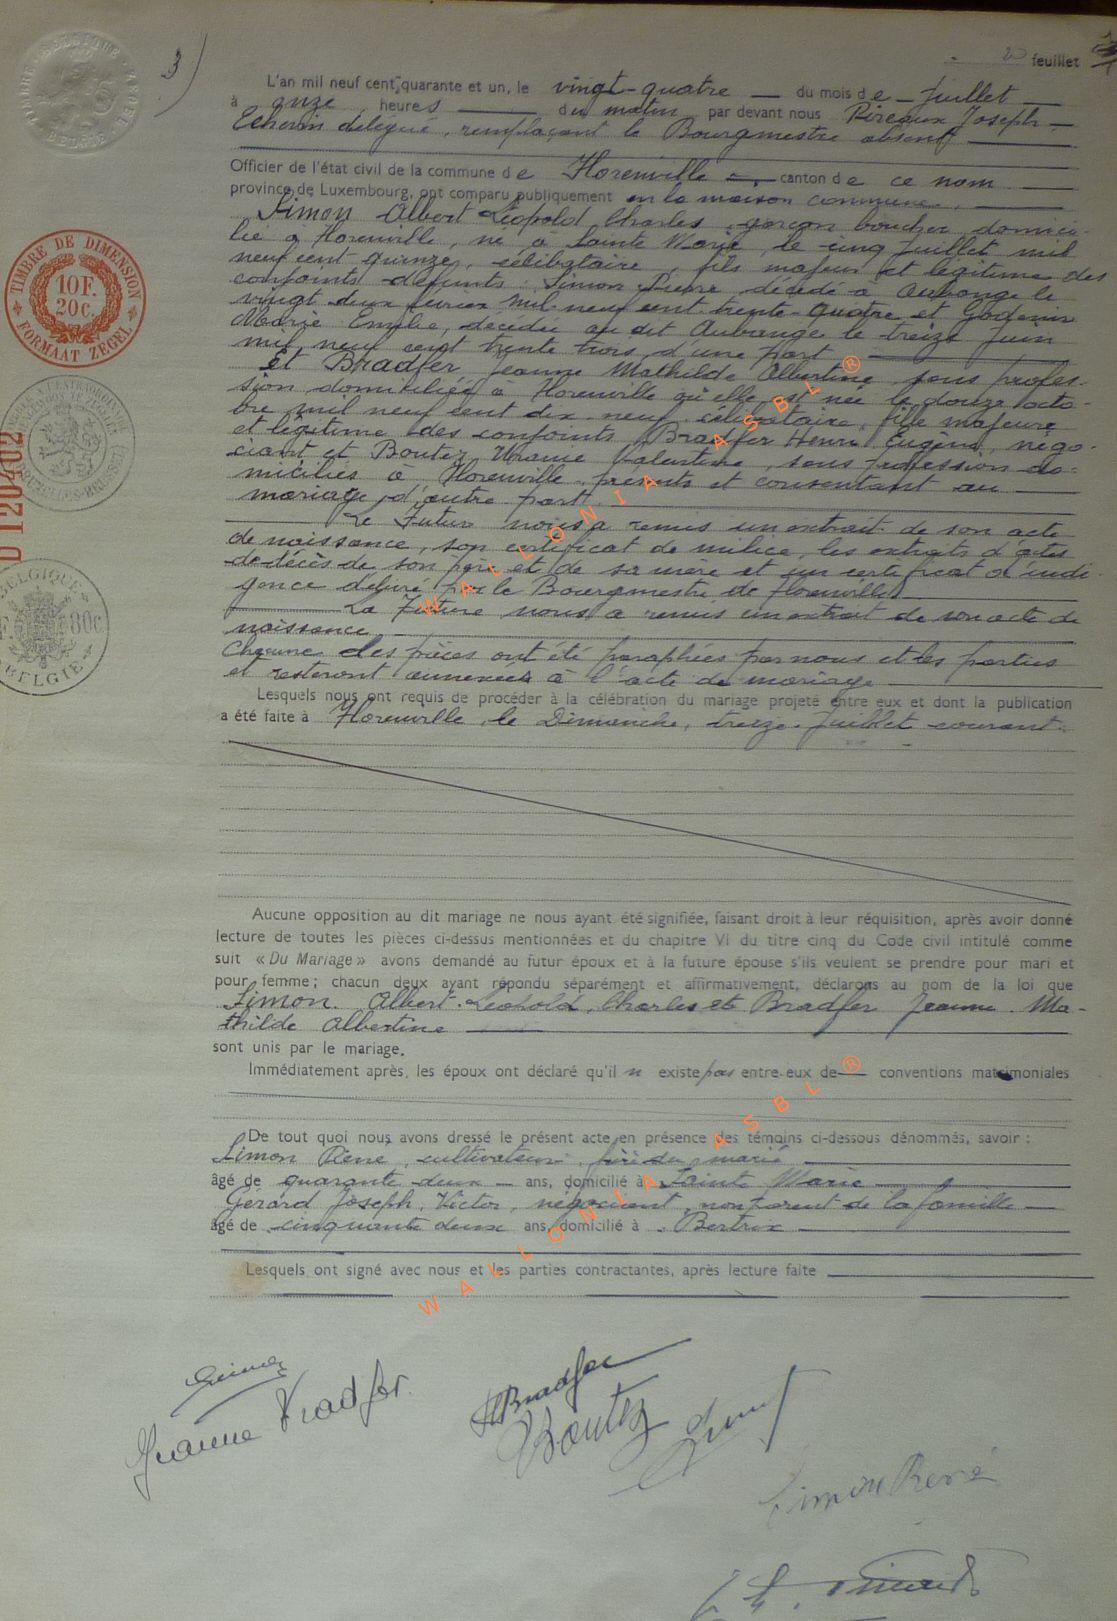 3)
feuillet
L'an mil neuf cent quarante et un, le vingt-quatre du mois de Juillet
à onze heures du matin par devant nous Pireaux Joseph
Echevin délégué, remplaçant le Bourgmestre absent
Officier de l'état civil de la commune de Florenville canton de ce nom
province de Luxembourg, ont comparu publiquement en la maison commune,
Simon Albert Léopold Charles garçon boucher domici-
lié à Florenville, né à Sainte Marie, le cinq Juillet mil
neuf cent quinze, célibataire, fils majeur et légitime des
conjoints défunts: Simon Pierre décédé à Aubange le
vingt deux février mil neuf cent trente-quatre et Godenir
Marie Emilie, décédée au dit Aubange le treize Juin
mil neuf cent trente trois, d'une part
Et Bradfer, Jeanne Mathilde Albertine, sans profes-
sion domiciliée à Florenville où elle est née le douze octo-
bre mil neuf cent dix-neuf, célibataire, fille majeure
et légitime des conjoints Bradfer Henri Eugène, négo-
ciant et Boutez Uranie Valentine, sans profession do-
miciliés à Florenville présents et consentant au
mariage, d'autre part.
Le Futur nous a remis un extrait de son acte
de naissance, son certificat de milice, les extraits d'actes
de décès de son père et de sa mère et un certificat d'indi-
gence délivré par le Bourgmestre de Florenville
La Future nous a remis un extrait de son acte de
naissance
Chacune des pièces ont été paraphées par nous et les parties
et resteront annexées à l'acte de mariage
Lesquels nous ont requis de procéder à la célébration du mariage projeté entre eux et dont la publication
a été faite à Florenville le Dimanche, treize Juillet courant.
Aucune opposition au dit mariage ne nous ayant été signifiée, faisant droit à leur réquisition, après avoir donné
lecture de toutes les pièces ci-dessus mentionnées et du chapitre VI du titre cinq du Code civil intitulé comme
suit « Du Mariage » avons demandé au futur époux et à la future épouse s'ils veulent se prendre pour mari et
pour femme ; chacun deux ayant répondu séparément et affirmativement, déclarons au nom de la loi que
Simon. Albert. Léopold. Charles et Bradfer Jeanne. Ma-
thilde Albertine
sont unis par le mariage.
Immédiatement après, les époux ont déclaré qu'il n existe pas entre eux de conventions matrimoniales
De tout quoi nous avons dressé le présent acte en présence des témoins ci-dessous dénommés, savoir :
Simon René, cultivateur, frère du marié
âgé de quarante deux ans, domicilié à Sainte Marie
Gérard Joseph, Victor, négociant, non parent de la famille
âgé de cinquante deux ans, domicilié à Bertrix
Lesquels ont signé avec nous et les parties contractantes, après lecture faite
Simon
Jeanne Bradfer.
HBradfer
Boutez
Simon René
TIMBRE DE DIMENSION
10F.
20c.
FORMAAT ZEGEL
D 120402
BELGIQUE
80c
BELGIE
WALLONIA ASBL®
WALLONIA ASBL®